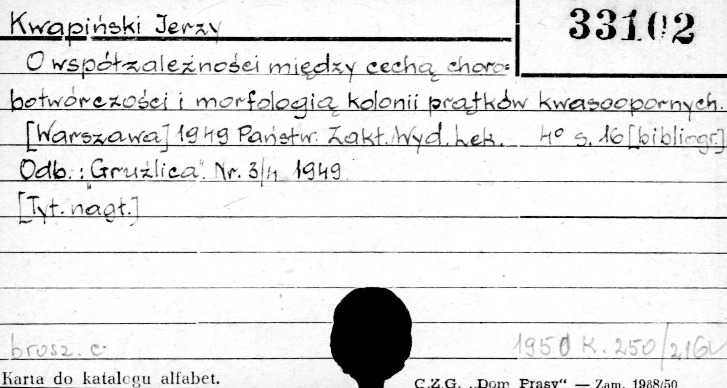 Kwapiński Jerzy
33102
O współzależności między cechą choro=
botwórczości i morfologią kolonii prątków kwasoopornych.
[Warszawa] 1949 Państw. Zakł. Wyd. Lek. 4° s. 16 [bibliogr]
Odb.: "Gruźlica". Nr. 3/4 1949
[Tyt. nagł.]
brosz. c. 1950 K. 250/216
Karta do katalogu alfabet. C.Z.G. „Dom Prasy“ — Zam. 1988/50